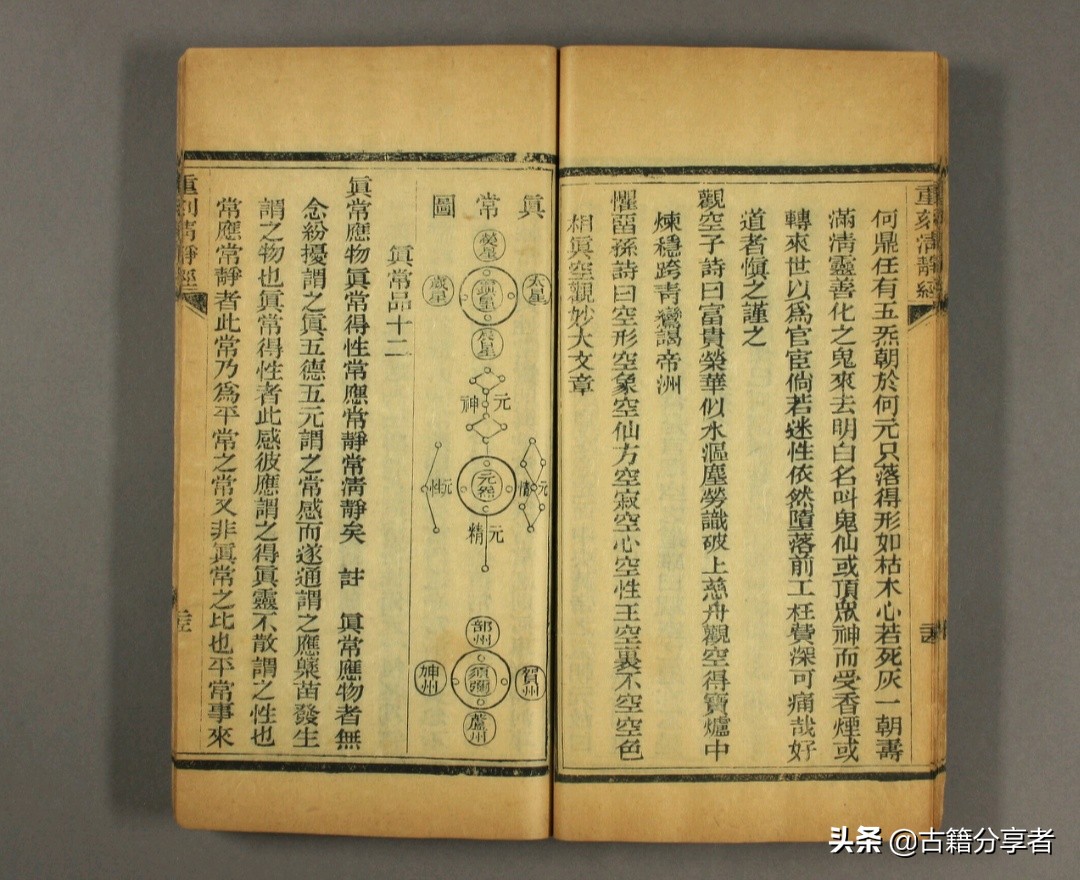 重刻清靜經
何鼎任有五炁朝於何元只落得形如枯木心若死灰一朝壽
滿淸靈善化之鬼來去明白名叫鬼仙或頂眾神而受香煙或
轉來世以爲官宦倘若迷性依然墮落前工枉費深可痛哉好
道者愼之謹之
觀空子詩曰富貴榮華似水漚塵勞識破上慈舟觀空得寶爐中
煉穩跨靑鸞謁帝洲
懼畱孫詩曰空形空象空仙方空寂空心空性王空裏不空空色
相眞空觀妙大文章
眞常圖
太星
歲星
元神
元情
元性
元精
部州
賀州
須彌
神州
蘆州
眞常品十二
眞常應物眞常得性常應常靜常淸靜矣 註 眞常應物者無
念紛擾謂之眞五德五元謂之常感而遂通謂之應蘖苗發生
謂之物也眞常得性者此感彼應謂之得眞靈不散謂之性也
常應常靜者此常乃爲平常之常又非眞常之比也平常事來
重刻淸靜經
头条 @古籍分享者